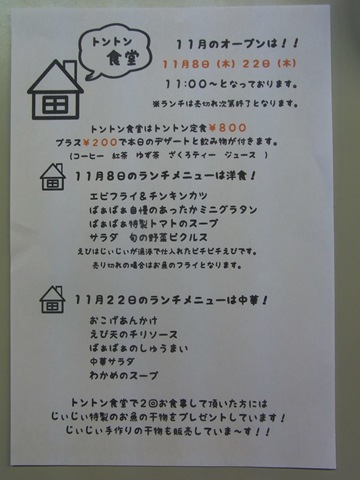 トントン
食堂
11月のオープンは!!
11月8日(木) 22日(木)
11:00〜となっております。
※ランチは売切れ次第終了となります。
トントン食堂はトントン定食¥800
プラス¥200で本日のデザートと飲み物が付きます。
(コーヒー 紅茶 ゆず茶 ざくろティー ジュース )
11月8日のランチメニューは洋食!
エビフライ&チンキンカツ
ばぁばぁ自慢のあったかミニグラタン
ばぁばぁ特製トマトのスープ
サラダ 旬の野菜ピクルス
えびはじぃじぃが漁港で仕入れたピチピチえびです。
売り切れの場合はお魚のフライとなります。
11月22日のランチメニューは中華!
おこげあんかけ
えび天のチリソース
ばぁばぁのしゅうまい
中華サラダ
わかめのスープ
トントン食堂で2回お食事して頂いた方には
じぃじぃ特製のお魚の干物をプレゼントしています!
じぃじぃ手作りの干物も販売していま〜す!!